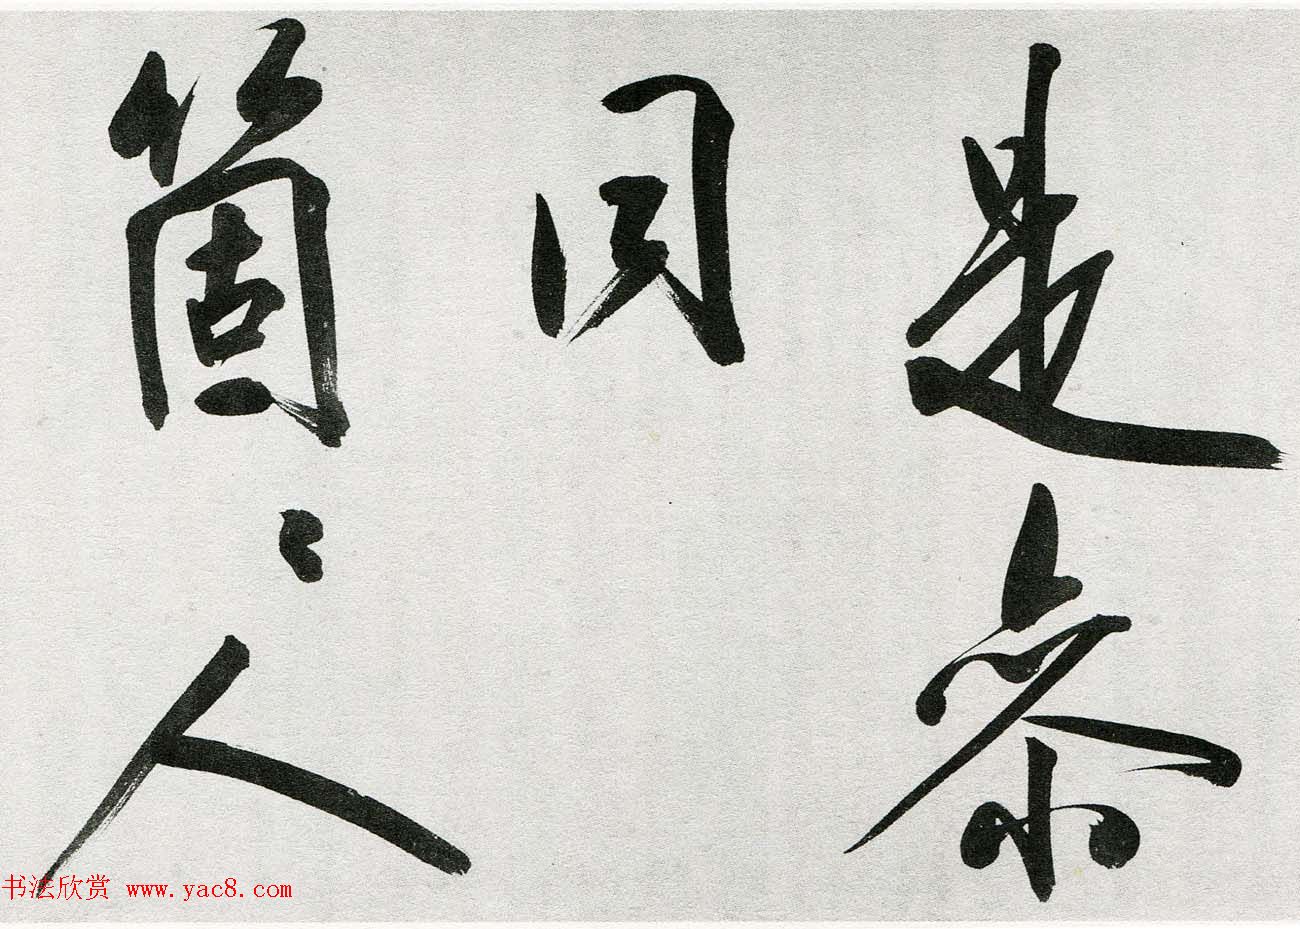 是叅
同
箇〻人
书法欣赏 www.yac8.com